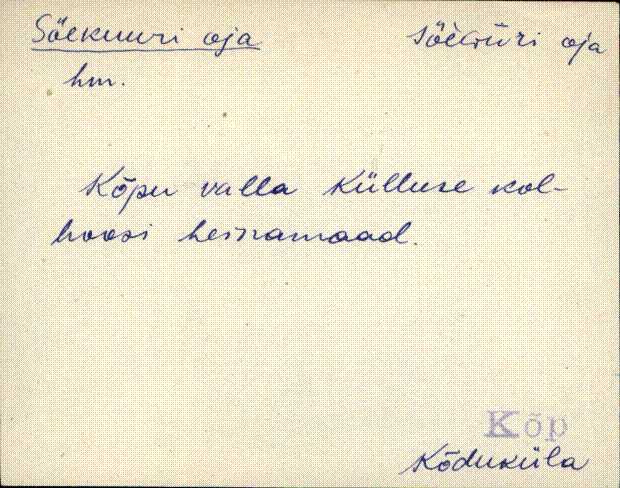 Söekuuri oja
söèkùri oja
hm.
Kõpu valla Külluse kol-
hoosi heinamaad.
Kõp
Kõduküla